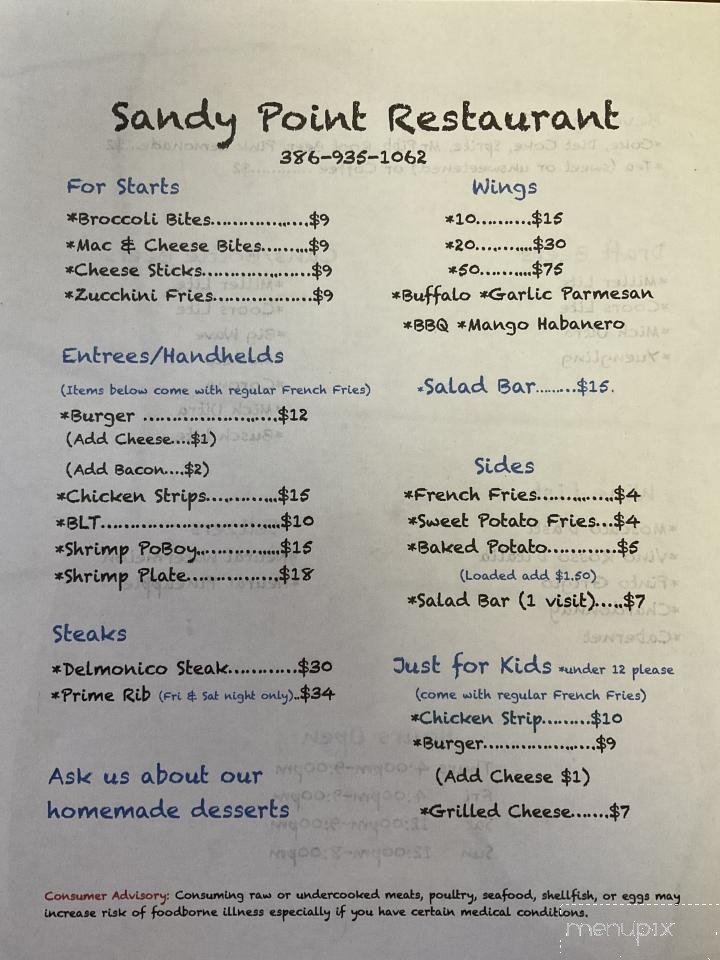 Sandy Point Restaurant
386-935-1062
For Starts
*Broccoli Bites.................$9
*Mac & Cheese Bites.........$9
*Cheese Sticks...................$9
*Zucchini Fries..................$9
Entrees/Handhelds
(Items below come with regular French Fries)
*Burger ........................$12
(Add Cheese....$1)
(Add Bacon....$2)
*Chicken Strips.............$15
*BLT................................$10
*Shrimp PoBoy...............$15
*Shrimp Plate................$18
Steaks
*Delmonico Steak............$30
*Prime Rib (Fri & Sat night only)..$34
Ask us about our
homemade desserts
Wings
*10..........$15
*20..........$30
*50..........$75
*Buffalo *Garlic Parmesan
*BBQ *Mango Habanero
*Salad Bar.........$15.
Sides
*French Fries..............$4
*Sweet Potato Fries...$4
*Baked Potato.............$5
(Loaded add $1.50)
*Salad Bar (1 visit).....$7
Just for Kids *under 12 please
(come with regular French Fries)
*Chicken Strip.........$10
*Burger...................$9
(Add Cheese $1)
*Grilled Cheese.......$7
Consumer Advisory: Consuming raw or undercooked meats, poultry, seafood, shellfish, or eggs may
increase risk of foodborne illness especially if you have certain medical conditions.
menupix